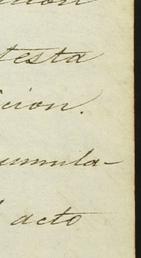 testa
cion.
umula-
acto